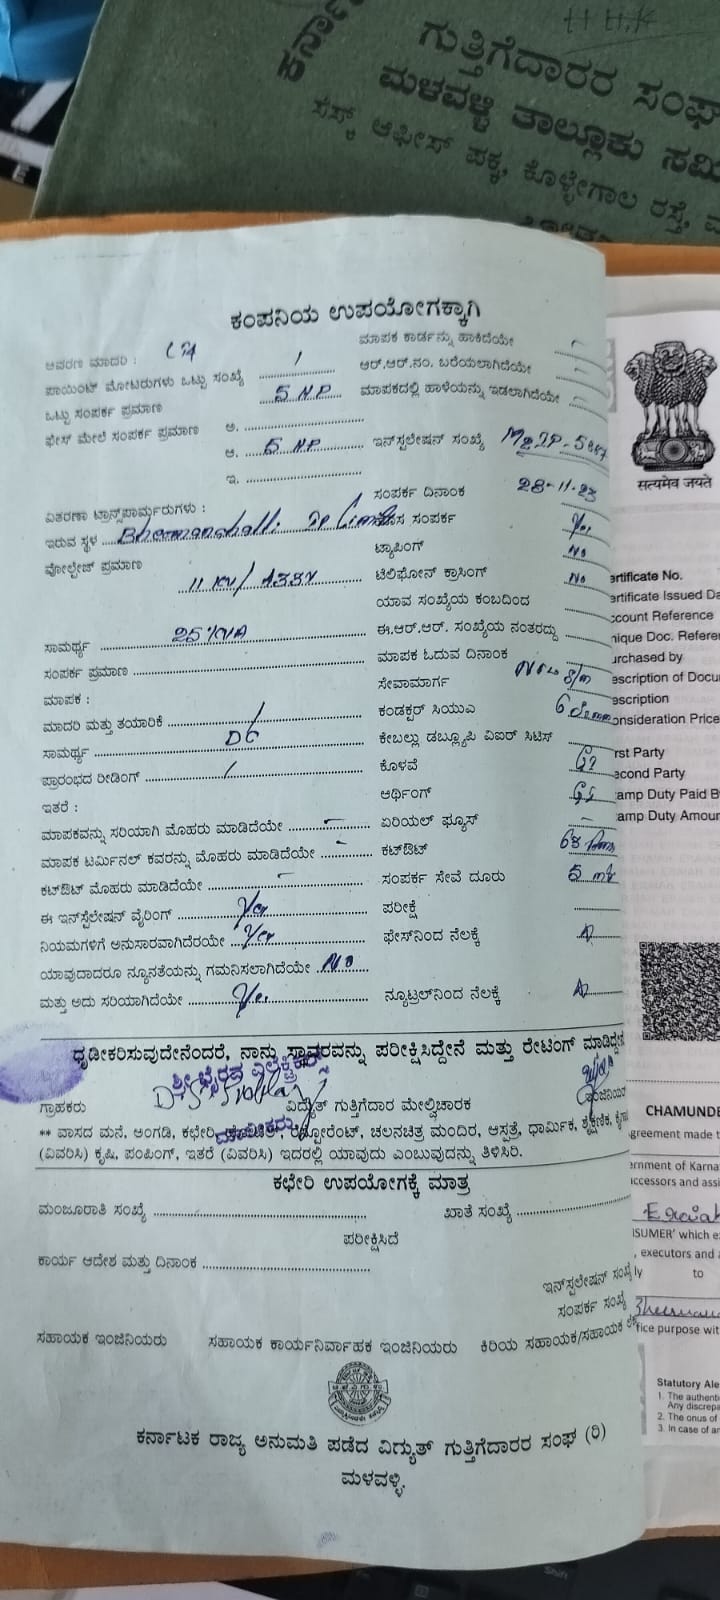 H H.K
ಗುತ್ತಿಗೆದಾರರ ಸಂಘ
ಮಳವಳ್ಳಿ ತಾಲ್ಲೂಕು ಸಮಿ
ಆಫೀಸ್ ಪಕ್ಕ, ಕೊಳ್ಳೇಗಾಲ ರಸ್ತೆ,
ಕಂಪನಿಯ ಉಪಯೋಗಕ್ಕಾಗಿ
ಆವರಣ ಮಾದರಿ :
ಪಾಯಿಂಟ್ ಮೋಟರುಗಳು ಒಟ್ಟು ಸಂಖ್ಯೆ
ಒಟ್ಟು ಸಂಪರ್ಕ ಪ್ರಮಾಣ 5 HP
ಫೇಸ್ ಮೇಲೆ ಸಂಪರ್ಕ ಪ್ರಮಾಣ ಅ.
ಆ. 5 HP
ಇ.
ವಿತರಣಾ ಟ್ರಾನ್ಸ್‌ಪಾರ್ಮ್ರರುಗಳು :
ಇರುವ ಸ್ಥಳ
ವೋಲ್ಟೇಜ್ ಪ್ರಮಾಣ 11 KV/ 433V
ಸಾಮರ್ಥ್ಯ 25 KVA
ಸಂಪರ್ಕ ಪ್ರಮಾಣ
ಮಾಪಕ :
ಮಾದರಿ ಮತ್ತು ತಯಾರಿಕೆ
ಸಾಮರ್ಥ್ಯ
ಪ್ರಾರಂಭದ ರೀಡಿಂಗ್
ಇತರೆ :
ಮಾಪಕವನ್ನು ಸರಿಯಾಗಿ ಮೊಹರು ಮಾಡಿದೆಯೇ
ಮಾಪಕ ಟರ್ಮಿನಲ್ ಕವರನ್ನು ಮೊಹರು ಮಾಡಿದೆಯೇ
ಕಟ್‌ಔಟ್ ಮೊಹರು ಮಾಡಿದೆಯೇ
ಈ ಇನ್‌ಸ್ಟಲೇಷನ್ ವೈರಿಂಗ್ Yes
ನಿಯಮಗಳಿಗೆ ಅನುಸಾರವಾಗಿದೆರಯೇ Yes
ಯಾವುದಾದರೂ ನ್ಯೂನತೆಯನ್ನು ಗಮನಿಸಲಾಗಿದೆಯೇ No
ಮತ್ತು ಅದು ಸರಿಯಾಗಿದೆಯೇ Yes
ಮಾಪಕ ಕಾರ್ಡನ್ನು ಹಾಕಿದೆಯೇ
ಆರ್.ಆರ್.ನಂ. ಬರೆಯಲಾಗಿದೆಯೇ
ಮಾಪಕದಲ್ಲಿ ಹಾಳೆಯನ್ನು ಇಡಲಾಗಿದೆಯೇ
ಇನ್‌ಸ್ಟಲೇಷನ್ ಸಂಖ್ಯೆ
ಸಂಪರ್ಕ ದಿನಾಂಕ 28-11-23
ಸಂಪರ್ಕ Yes
ಟ್ಯಾಪಿಂಗ್ No
ಟೆಲಿಫೋನ್ ಕ್ರಾಸಿಂಗ್ No
ಯಾವ ಸಂಖ್ಯೆಯ ಕಂಬದಿಂದ
ಈ.ಆರ್.ಆರ್. ಸಂಖ್ಯೆಯ ನಂತರದ್ದು
ಮಾಪಕ ಓದುವ ದಿನಾಂಕ
ಸೇವಾಮಾರ್ಗ
ಕಂಡಕ್ಟರ್ ಸಿಯುಎ
ಕೇಬಲ್ಲು ಡಬ್ಲ್ಯೂಪಿ ವಿಐರ್ ಸಿಟಿಸ್
ಕೊಳವೆ GI
ಆರ್ಥಿಂಗ್ GI
ಏರಿಯಲ್ ಫ್ಯೂಸ್
ಕಟ್‌ಔಟ್
ಸಂಪರ್ಕ ಸೇವೆ ದೂರು
ಪರೀಕ್ಷೆ
ಫೇಸ್‌ನಿಂದ ನೆಲಕ್ಕೆ
ನ್ಯೂಟ್ರಲ್‌ನಿಂದ ನೆಲಕ್ಕೆ
ಧೃಡೀಕರಿಸುವುದೇನೆಂದರೆ, ನಾನು ಸ್ಥಾವರವನ್ನು ಪರೀಕ್ಷಿಸಿದ್ದೇನೆ ಮತ್ತು ರೇಟಿಂಗ್ ಮಾಡಿದ್ದೇನೆ
ಶ್ರೀ ಭೈರವ ಎಲೆಕ್ಟ್ರಿಕಲ್ಸ್
ಗ್ರಾಹಕರು ವಿದ್ಯುತ್ ಗುತ್ತಿಗೆದಾರ ಮೇಲ್ವಿಚಾರಕ
** ವಾಸದ ಮನೆ, ಅಂಗಡಿ, ಕಛೇರಿ, ರೆಸ್ಟೋರೆಂಟ್, ಚಲನಚಿತ್ರ ಮಂದಿರ, ಆಸ್ಪತ್ರೆ, ಧಾರ್ಮಿಕ, ಶೈಕ್ಷಣಿಕ,
(ವಿವರಿಸಿ) ಕೃಷಿ, ಪಂಪಿಂಗ್, ಇತರೆ (ವಿವರಿಸಿ) ಇದರಲ್ಲಿ ಯಾವುದು ಎಂಬುವುದನ್ನು ತಿಳಿಸಿರಿ.
ಕಛೇರಿ ಉಪಯೋಗಕ್ಕೆ ಮಾತ್ರ
ಮಂಜೂರಾತಿ ಸಂಖ್ಯೆ ಖಾತೆ ಸಂಖ್ಯೆ
ಪರೀಕ್ಷಿಸಿದೆ
ಕಾರ್ಯ ಆದೇಶ ಮತ್ತು ದಿನಾಂಕ
ಇನ್‌ಸ್ಟಲೇಷನ್ ಸಂಖ್ಯೆ
ಸಂಪರ್ಕ ಸಂಖ್ಯೆ
ಸಹಾಯಕ ಇಂಜಿನಿಯರು ಸಹಾಯಕ ಕಾರ್ಯನಿರ್ವಾಹಕ ಇಂಜಿನಿಯರು ಕಿರಿಯ ಸಹಾಯಕ/ಸಹಾಯಕ
ಕರ್ನಾಟಕ ರಾಜ್ಯ ಅನುಮತಿ ಪಡೆದ ವಿದ್ಯುತ್ ಗುತ್ತಿಗೆದಾರರ ಸಂಘ (ರಿ)
ಮಳವಳ್ಳಿ.
सत्यमेव जयते
ertificate No.
ertificate Issued Da
ccount Reference
nique Doc. Refere
urchased by
escription of Docu
escription
onsideration Price
rst Party
econd Party
tamp Duty Paid B
tamp Duty Amour
CHAMUNDE
greement made t
ernment of Karna
uccessors and assi
ISUMER' which e
, executors and a
ly to
fice purpose wit
Statutory Ale
1. The authenti
Any discrepa
2. The onus of
3. In case of an